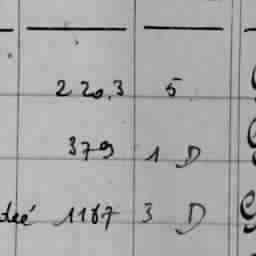 220.3 5
379 1 D
deé 1167 3 D